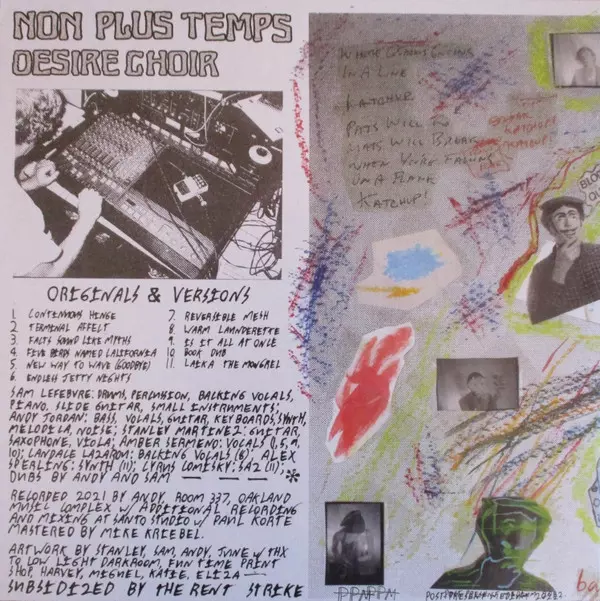 NON PLUS TEMPS
DESIRE CHOIR
ORIGINALS & VERSIONS
1. CONTINUOUS HINGE
2. TERMINAL AFFECT
3. FACTS SOUND LIKE MYTHS
4. FIVE BIRDS NAMED CALIFORNIA
5. NEW WAY TO WAVE (GOODBYE)
6. ENDLESS JETTY NIGHTS
7. REVERSIBLE MESH
8. WARM LAUNDERETTE
9. IS IT ALL AT ONCE
10. BOOK DUB
11. LAIKA THE MONGREL
SAM LEFEBVRE: DRUMS, PERCUSSION, BACKING VOCALS,
PIANO, SLIDE GUITAR, SMALL INSTRUMENTS;
ANDY JORDAN: BASS, VOCALS, GUITAR, KEYBOARDS, SYNTH,
MELODICA, NOISE; STANLEY MARTINEZ: GUITAR,
SAXOPHONE, VIOLA; AMBER SERMENO: VOCALS (1, 5, 9,
10); CANDACE LAZAROU: BACKING VOCALS (8); ALEX
SPERLING: SYNTH (11); CYRUS COMISKY: SAZ (11);
DUBS BY ANDY AND SAM — — — *
RECORDED 2021 BY ANDY, ROOM 337, OAKLAND
MUSIC COMPLEX W/ ADDITIONAL RECORDING
AND MIXING AT SANTO STUDIO W/ PAUL KORTE
MASTERED BY MIKE KRIEBEL.
ARTWORK BY STANLEY, SAM, ANDY, JUNE W/ THX
TO LOW LIGHT DARKROOM, FUN TIME PRINT
SHOP, HARVEY, MIGUEL, KATIE, ELIZA —
SUBSIDIZED BY THE RENT STRIKE
IN A LINE
KATCHUP
PATS WILL
HATS WILL BREAK
WHEN YOU'RE FALLING
ON A PLANK
KATCHUP!